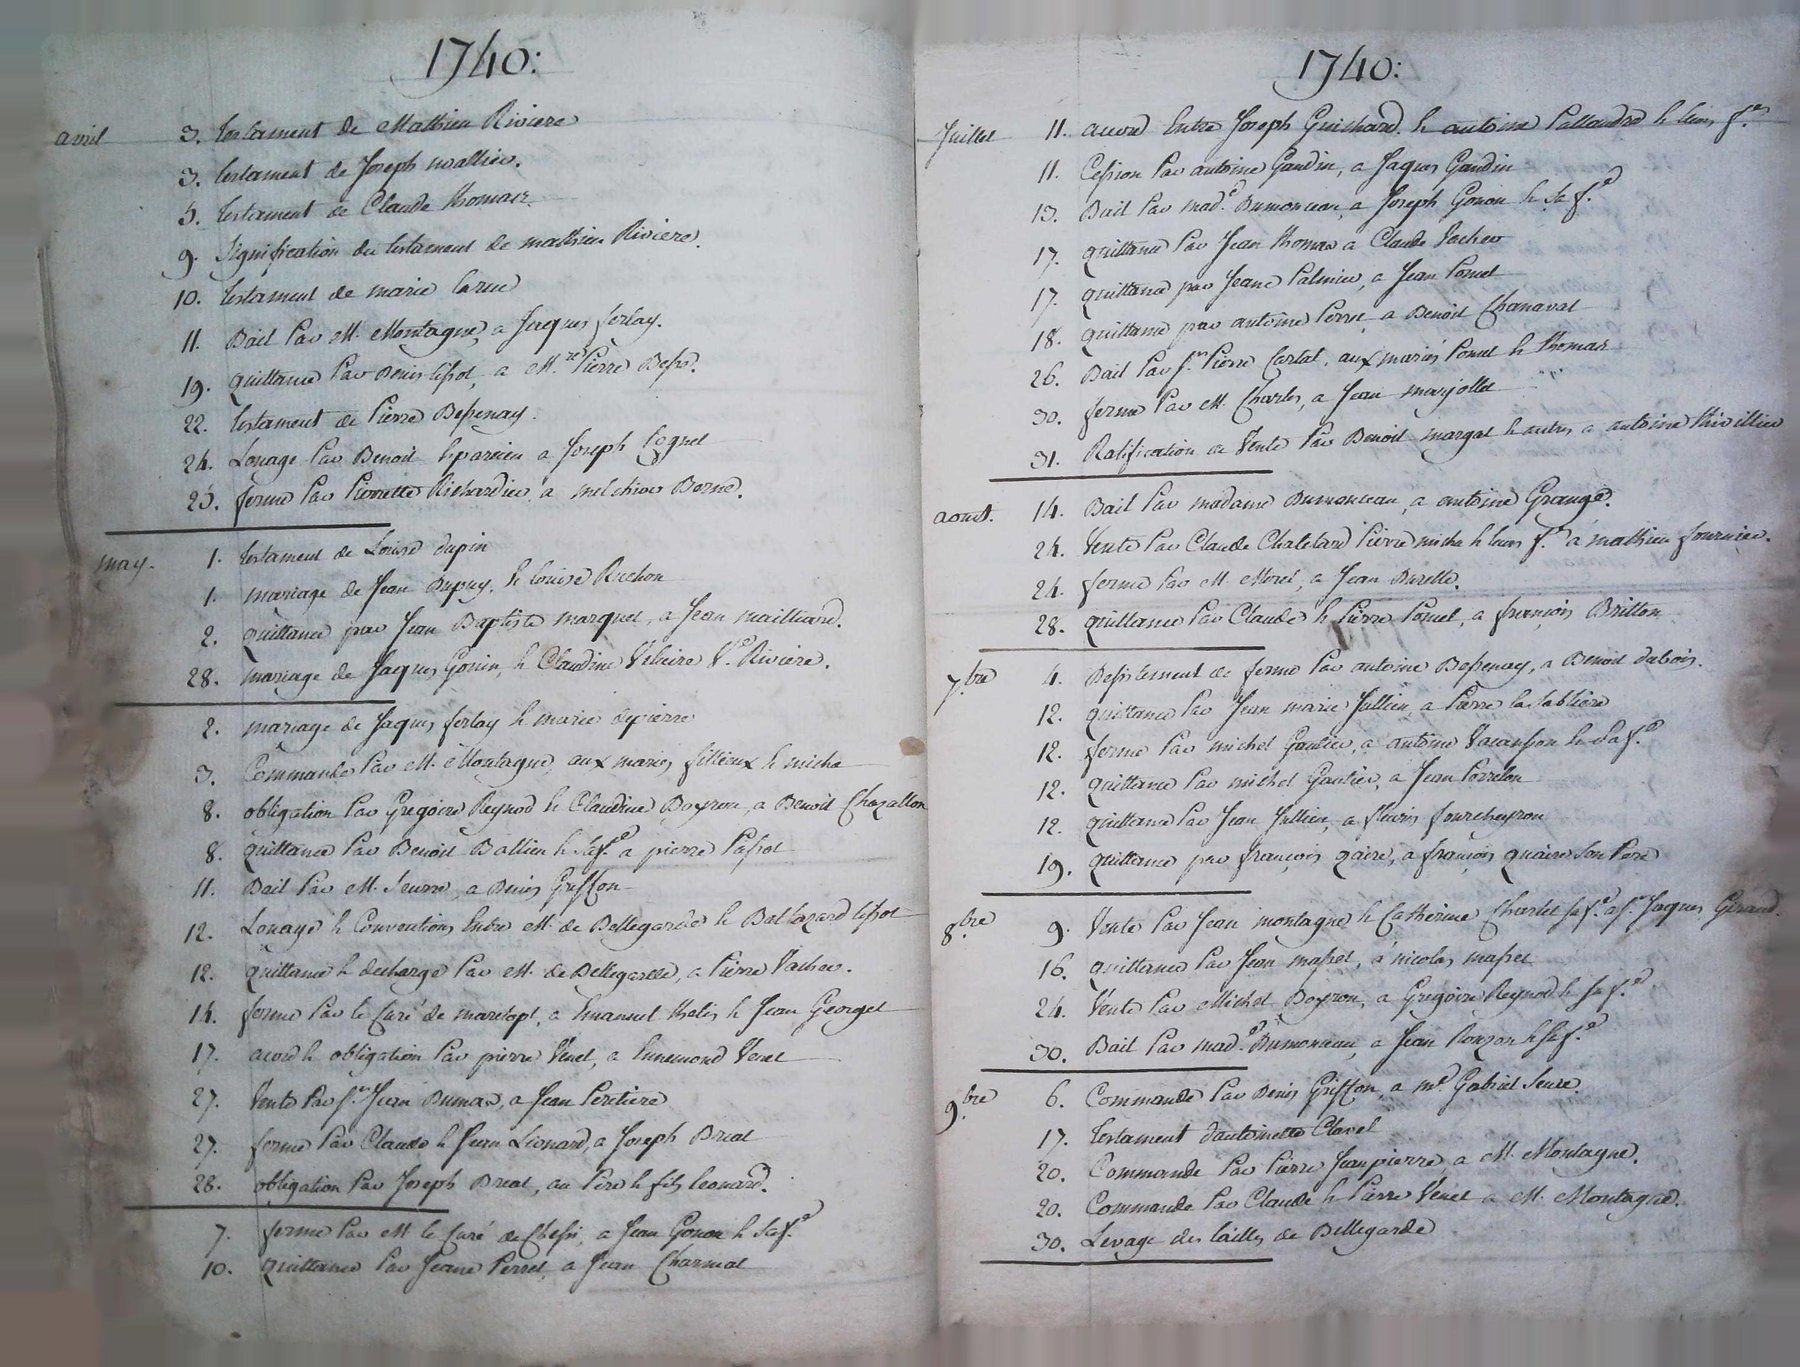 1740:
avril 3. testament de Mathieu Riviere
3. testament de Joseph mallieu.
5. testament de Claude thomas
9. Signification du testament de mathieu Riviere.
10. testament de marie
11. Bail Par M. Montagne, a Jaques ferlay.
19. quittance Par Denis a M.re Pierre
22. testament de Pierre Bessenay.
24. Louage Par Benoit a Joseph
25. ferme Par Pierrette Richardier, a melchior Borne.
may. 1. testament de Louise dupin
1. mariage de Jean Dupuy, & louise Ruchon
2. quittance par Jean Baptiste marquet, a Jean mailliard.
28. mariage de Jaques Gonin, & Claudine V.e Riviere.
2. mariage de Jaques ferlay & marie depierre
3. Commande Par M. Montagne, aux mariés fillieux & micha
8. obligation Par Gregoire Reynod & Claudine Boyron, a Benoit Chazallon
8. quittance Par Benoit Ballieu & sa f.e a pierre Passot
11. Bail Par M. Seurre, a Denis Griffon
12. Louage & Conventions Entre M. de Bellegarde & Baltazard
12. quittance & decharge Par M. de Bellegarde, a Pierre Vacher.
14. ferme Par le Curé de a Emanuel & Jean Georget
17. acord & obligation Par pierre Venet, a Ennemond Venet
27. Vente Par s.r Jean Dumas, a Jean
27. ferme Par Claude & Jean Léonard, a Joseph Breat
28. obligation Par Joseph Breat, au Pere & fils leonard.
7. ferme Par M le Curé de a Jean Gonon & sa f.e
10. quittance Par Jeane Perret, a Jean Charmat
1740:
Juillet 11. acord Entre Joseph Guichard, & antoine Pallandre & leurs f.e
11. Cession Par antoine Gaudin, a Jaques Gaudin
13. Bail Par mad.e Dumonceau, a Joseph Gonon & sa f.e
17. quittance Par Jean thomas a Claude Vacher
17. quittance par Jeane Palmier, a Jean Ponet
18. quittance par antoine a Benoit Chanavat
26. Bail Par s.r Pierre aux mariés & thomas
30. ferme Par M. Charles, a Jean marjollet
31. Ratification de Vente Par Benoit margat & autres a antoine thivillier
aoust. 14. Bail Par madame Dumonceau, a antoine Grange.
24. Vente Par Claude Chatelard Pierre micha & leurs f.e a mathieu fournier.
24. ferme Par M. Morel, a Jean Burette.
28. quittance Par Claude & Pierre a françois Britton
7.bre 4. Desistement de ferme Par antoine Bessenay, a Benoit dubois.
12. quittance Par Jean marie Jullien, a Pierre la sabliere
12. ferme Par michel Gautier, a antoine Vacanson & sa f.e
12. quittance Par michel Gautier, a Jean
12. quittance Par Jean Jullien, a fleuris fourcheyron
19. quittance par françois qaire, a françois quaire Son Pere
8.bre 9. Vente Par Jean montagne & Catherine Charlet sa f.e a s.r Jaques Giraud.
16. quittance Par Jean masset, a nicolas masset
24. Vente Par Michel Boyron, a Gregoire Reynod & sa f.e
30. Bail Par mad.e Dumonceau, a Jean Ronzon & sa f.e
9.bre 6. Commande Par Denis Griffon, a m.e Gabriel Seure.
17. testament d'antoinette Clavel
20. Commande Par Pierre Jeanpierre, a M. Montagne.
20. Commande Par Claude & Pierre Venet a M. Montagne.
30. Levage des tailles de Bellegarde